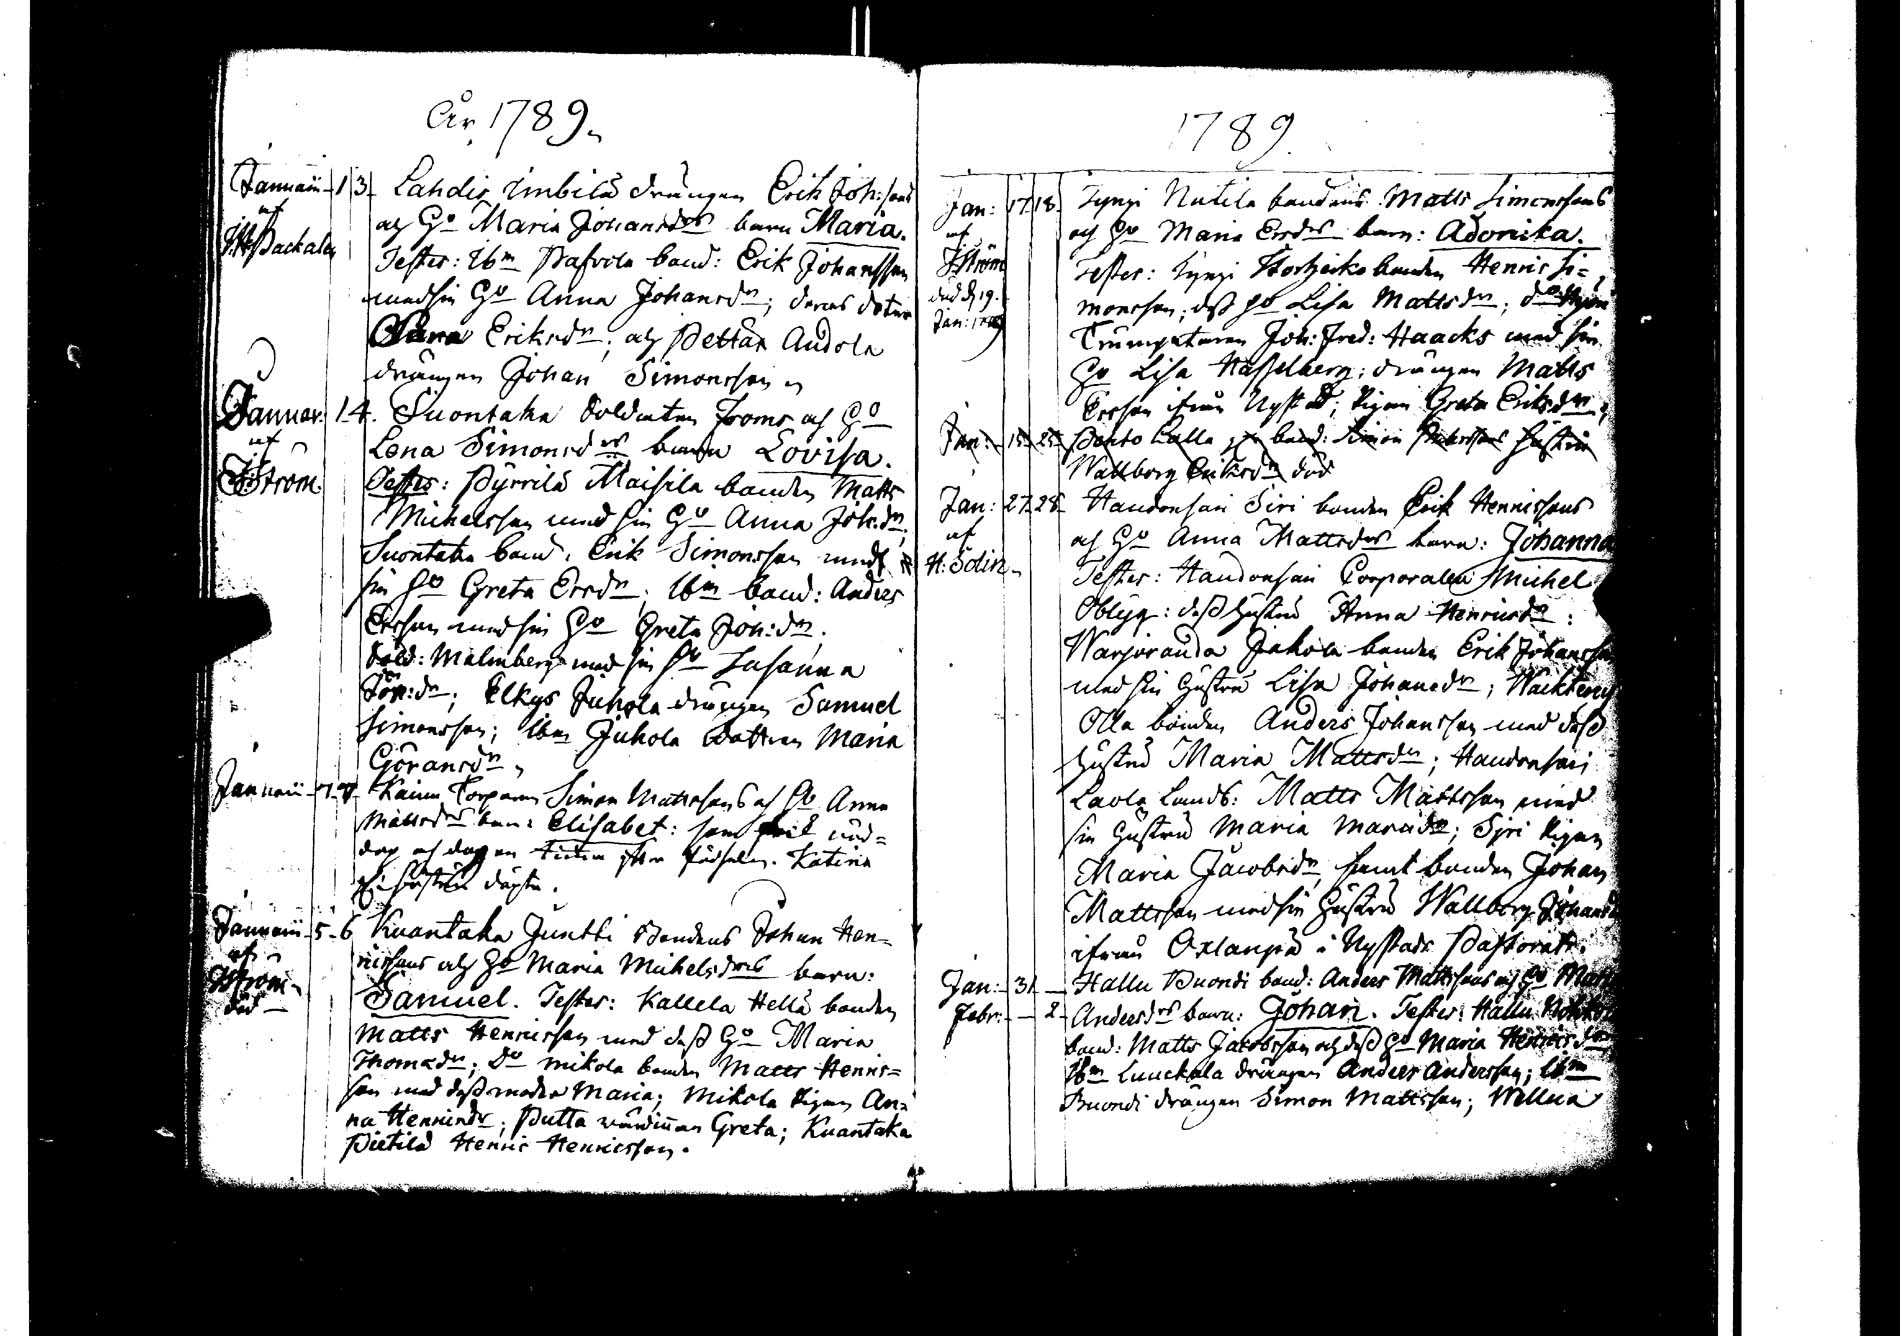 År 1789.
Januarii 1 3 Lahdis Simbilä drängen Erik Joh:sons
af och Ho Maria Johansdrs barn Maria.
J:H: Packalen Testes: Ibm Pafvola band: Erik Johansson
med sin Ho Anna Johansdr; deras doter
Anna Eriksdr; och Pettäx Andola
drängen Johan Simonsson
Januar: 1 4. Suontaka Soldaten Froms och Ho
af Lena Simonsdrs barn Lovisa.
J:Ström. Testes: Pyrrilä Maisila bonden Matts
Michelsson med sin Ho Anna Joh:dr;
Suontaka band. Erik Simonsson med
sin Ho Greta Ersdr; Ibm band: Anders
Ersson med sin Ho Greta Joh:dr.
Sold: Malmberg med sin Ho Susanna
Joh:dr; Elkys Juhola drängen Samuel
Simonsson; Ibm Juhola dottren Maria
Göransdr
Januarii 7 7 Kainu Torparen Simon Mattssons och Ho Anna
Mattsdrs barn: Elisabet: som fick nöd-
dop och dog en timma efter födseln. Katarina
döpte.
Januarii 5 6 Kuantaka Juntti Bondens Johan Hen-
af ricssons och Ho Maria Michelsdrs barn:
J:Ström Samuel. Testes: Kallela Hellä bonden
död Matts Henricsson med dess Ho Maria
Thomasdr; Do Mikola bonden Matts Henric-
son med dess moder Maria; Mikola Pigan An-
na Henricsdr; Putta värdinnan Greta; Kuantaka
Pietilä Henric Henricsson.
1789.
Jan: 17 18 Tyngi Nutila bondens Matts Simonssons
af och Ho Maria Ersdrs barn: Adorika.
J:Ström Testes: Tyngi bonden Henric Si-
död d 19 monsson; dess Ho Lisa Mattsdr;
Jan: 1789 Trumpetaren Joh: Fred: Haacks med sin
Ho Lisa Hasselberg; drängen Matts
Ersson ifrån Nystad; Pigan Greta Eriksdr
Jan: 15 25 Lalla band: Simon hustru
Wallborg Eriksdr död
Jan: 27 28 Haudonsari Siri bonden Erik Henricssons
af och Ho Anna Mattsdrs barn: Johanna
H: Solin Testes: Haudonsari Corporalen Michel
Oblyg: dess hustru Anna Henricsdr:
Warjoranda Jakola bonden Erik Johansson
med sin hustru Lisa Johansdr;
Olla bonden Anders Johansson med dess
hustru Maria Mattsdr; Haudonsari
Laola Landb: Matts Mattsson med
sin hustru Maria dr; Siri Pigan
Maria Jacobsdr, samt bonden Johan
Mattsson med sin hustru Wallborg Johansdr
ifrån Orlanpä i Nystads Pastorat.
Jan: 31 Hallu Buondi band: Anders Mattssons och Ho
Febr: 2 Andersdrs barn: Johan. Testes: Hallu
band: Matts Jacobsson och dess Ho Maria Henricsdr
Ibm Luuckala drängen Anders Andersson; Ibm
Buondi drängen Simon Mattsson;